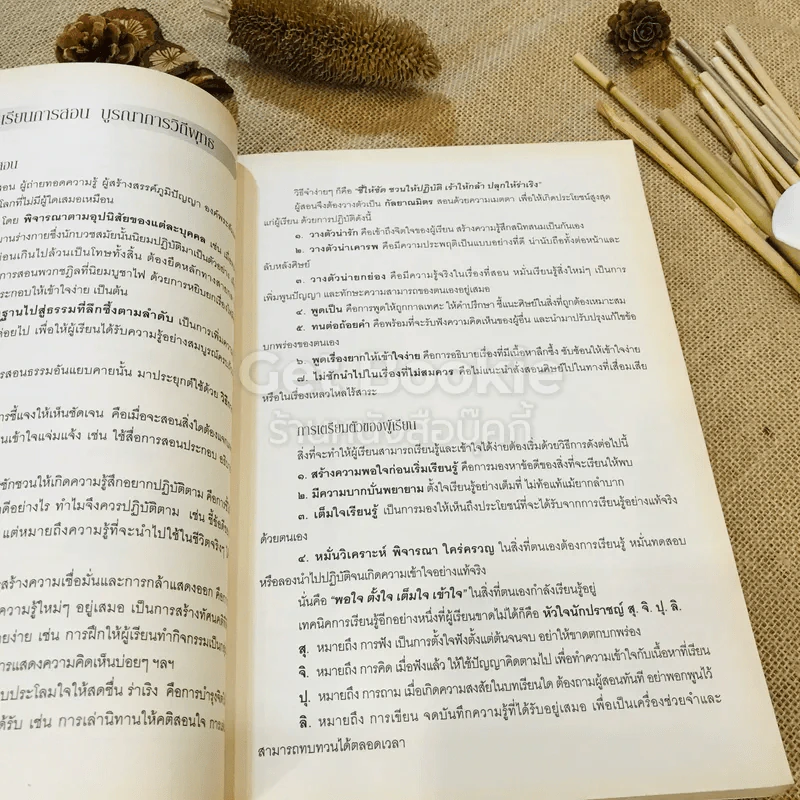 เรียนการสอน บูรณาการวิถีพุทธ
สอน
สอน ผู้ถ่ายทอดความรู้ ผู้สร้างสรรค์ภูมิปัญญา
โลกที่ไม่มีผู้ใดเสมอเหมือน
โดย พิจารณาตามอุปนิสัยของแต่ละบุคคล เช่น
านร่างกายซึ่งนักบวชสมัยนั้นนิยมปฏิบัติมาเป็นตัวอย่าง
ย่อนเกินไปล้วนเป็นโทษทั้งสิ้น ต้องยึดหลักทางสายกลาง
การสอนพวกชฎิลที่นิยมบูชาไฟ ด้วยการหยิบยก
ระกอบให้เข้าใจง่าย เป็นต้น
ฐานไปสู่ธรรมที่ลึกซึ้งตามลำดับ เป็นการเพิ่ม
ต่อยไป เพื่อให้ผู้เรียนได้รับความรู้อย่างสมบูรณ์
ารสอนธรรมอันแยบคายนั้น มาประยุกต์ใช้ด้วย
การชี้แจงให้เห็นชัดเจน คือเมื่อจะสอนสิ่งใดต้อง
นเข้าใจแจ่มแจ้ง เช่น ใช้สื่อการสอนประกอบ
ชักชวนให้เกิดความรู้สึกอยากปฏิบัติตาม คือการ
ดีอย่างไร ทำไมจึงควรปฏิบัติตาม เช่น
แต่หมายถึงความรู้ที่จะนำไปใช้ในชีวิตจริงๆ
สร้างความเชื่อมั่นและการกล้าแสดงออก คือ
ความรู้ใหม่ๆ อยู่เสมอ เป็นการสร้างทัศนคติ
ายง่าย เช่น การฝึกให้ผู้เรียนทำกิจกรรม
การแสดงความคิดเห็นบ่อยๆ ฯลฯ
บประโลมใจให้สดชื่น ร่าเริง คือการบำรุง
ด้รับ เช่น การเล่านิทานให้คติสอนใจ
วิธีจำง่ายๆ ก็คือ "ชี้ให้ชัด ชวนให้ปฏิบัติ เร้าให้กล้า ปลุกให้ร่าเริง"
ผู้สอนจึงต้องวางตัวเป็น กัลยาณมิตร สอนด้วยความเมตตา เพื่อให้เกิดประโยชน์สูงสุด
แก่ผู้เรียน ด้วยการปฏิบัติดังนี้
๑. วางตัวน่ารัก คือเข้าถึงจิตใจของผู้เรียน สร้างความรู้สึกสนิทสนมเป็นกันเอง
๒. วางตัวน่าเคารพ คือมีความประพฤติเป็นแบบอย่างที่ดี น่านับถือทั้งต่อหน้าและ
ลับหลังศิษย์
๓. วางตัวน่ายกย่อง คือมีความรู้จริงในเรื่องที่สอน หมั่นเรียนรู้สิ่งใหม่ๆ เป็นการ
เพิ่มพูนปัญญา และทักษะความสามารถของตนเองอยู่เสมอ
๔. พูดเป็น คือการพูดให้ถูกกาลเทศะ ให้คำปรึกษา ชี้แนะศิษย์ในสิ่งที่ถูกต้องเหมาะสม
๕. ทนต่อถ้อยคำ คือพร้อมที่จะรับฟังความคิดเห็นของผู้อื่น และนำมาปรับปรุงแก้ไขข้อ
บกพร่องของตนเอง
๖. พูดเรื่องยากให้เข้าใจง่าย คือการอธิบายเรื่องที่มีเนื้อหาลึกซึ้ง ซับซ้อนให้เข้าใจง่าย
๗. ไม่ชักนำไปในเรื่องที่ไม่สมควร คือไม่แนะนำสั่งสอนศิษย์ไปในทางที่เสื่อมเสีย
หรือในเรื่องเหลวไหลไร้สาระ
GetBookie
ร้านหนังสือบุ๊คกี้
การเตรียมตัวของผู้เรียน
สิ่งที่จะทำให้ผู้เรียนสามารถเรียนรู้และเข้าใจได้ง่ายต้องเริ่มด้วยวิธีการดังต่อไปนี้
๑. สร้างความพอใจก่อนเริ่มเรียนรู้ คือการมองหาข้อดีของสิ่งที่จะเรียนให้พบ
๒. มีความบากบั่นพยายาม ตั้งใจเรียนรู้อย่างเต็มที่ ไม่ท้อแท้แม้ยากลำบาก
๓. เต็มใจเรียนรู้ เป็นการมองให้เห็นถึงประโยชน์ที่จะได้รับจากการเรียนรู้อย่างแท้จริง
ด้วยตนเอง
๔. หมั่นวิเคราะห์ พิจารณา ใคร่ครวญ ในสิ่งที่ตนเองต้องการเรียนรู้ หมั่นทดสอบ
หรือลองนำไปปฏิบัติจนเกิดความเข้าใจอย่างแท้จริง
นั่นคือ "พอใจ ตั้งใจ เต็มใจ เข้าใจ" ในสิ่งที่ตนเองกำลังเรียนรู้อยู่
เทคนิคการเรียนรู้อีกอย่างหนึ่งที่ผู้เรียนขาดไม่ได้ก็คือ หัวใจนักปราชญ์ สุ. จิ. ปุ. ลิ.
สุ. หมายถึง การฟัง เป็นการตั้งใจฟังตั้งแต่ต้นจนจบ อย่าให้ขาดตกบกพร่อง
จิ. หมายถึง การคิด เมื่อฟังแล้ว ให้ใช้ปัญญาคิดตามไป เพื่อทำความเข้าใจกับเนื้อหาที่เรียน
ปุ. หมายถึง การถาม เมื่อเกิดความสงสัยในบทเรียนใด ต้องถามผู้สอนทันที อย่าพอกพูนไว้
ลิ. หมายถึง การเขียน จดบันทึกความรู้ที่ได้รับอยู่เสมอ เพื่อเป็นเครื่องช่วยจำและ
สามารถทบทวนได้ตลอดเวลา